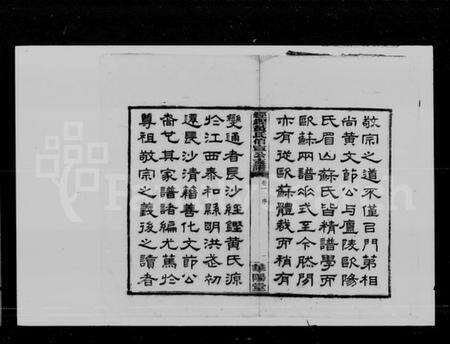 敬宗之道不僅曰門第相
尚黄文節公与廬陵歐陽
氏眉山蘇氏皆精譜學而
歐蘇兩譜式至今然間
亦有從歐蘇體裁而稍有
卷一
序
華陽堂
變通者長沙經鏗黄氏源
於江西泰和縣明洪武初
遷長沙清籍善化文節公
裔也其家譜諸編尤篤於
尊祖敬宗之義後之讀者